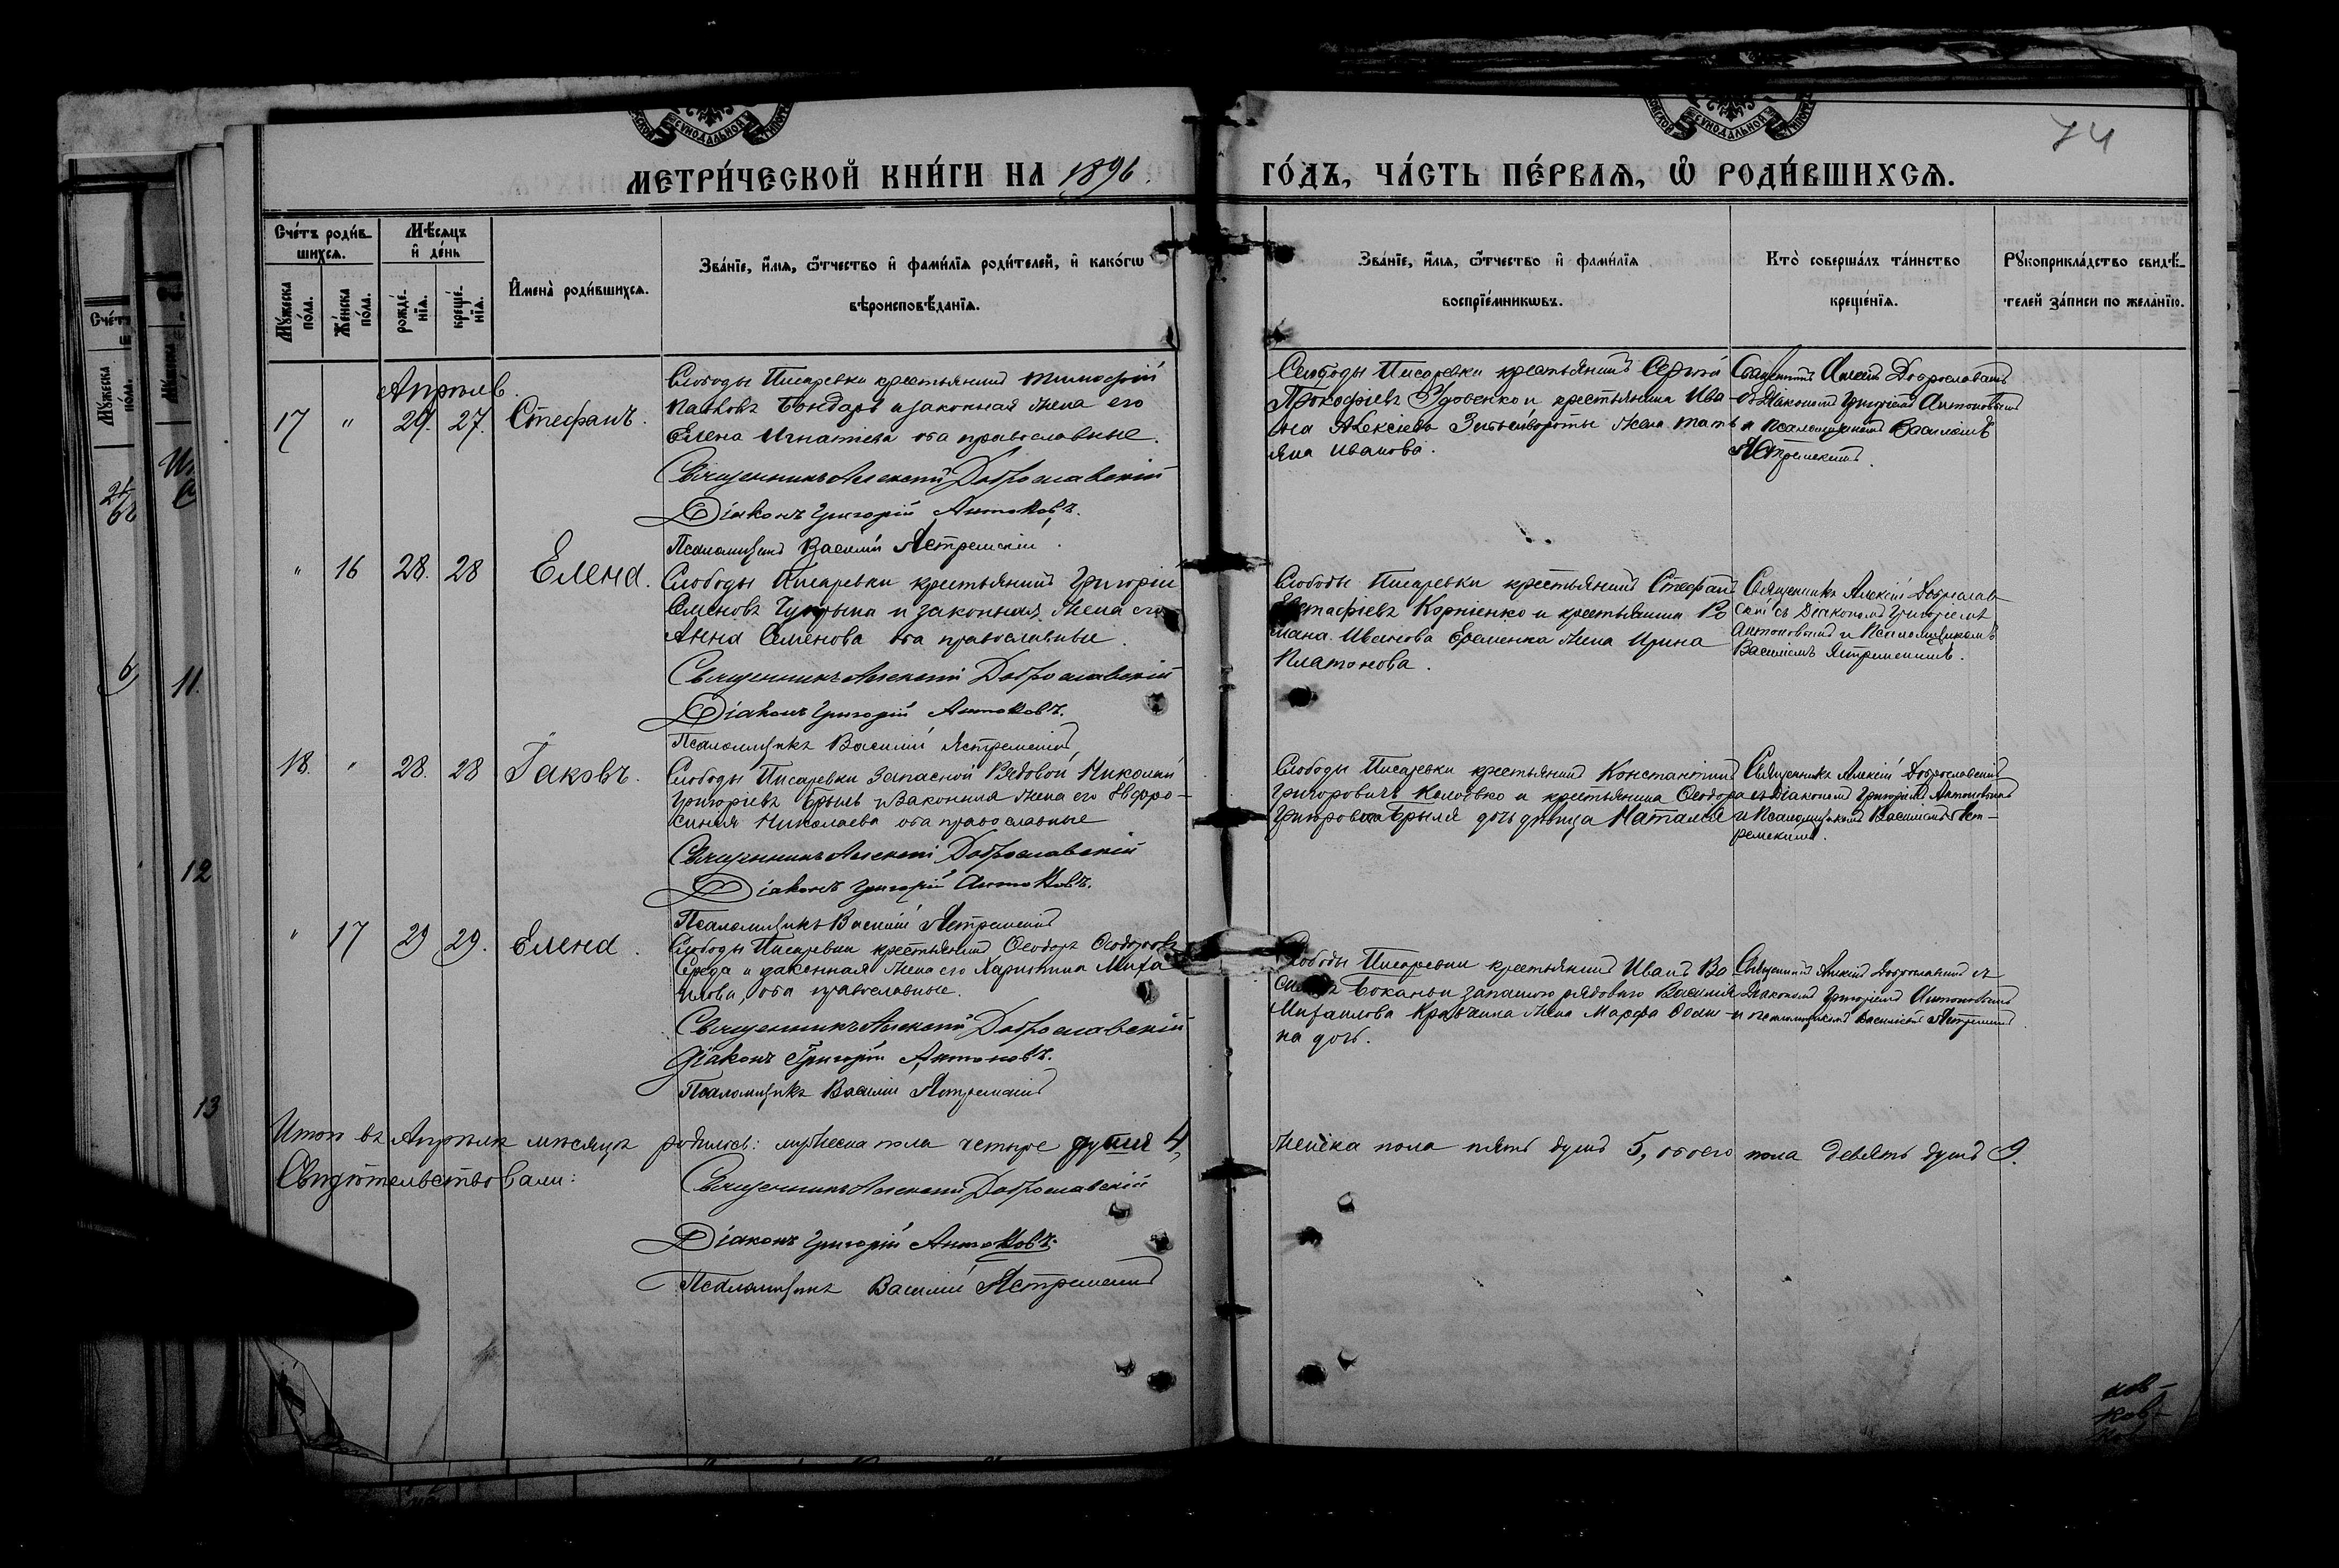 МЕТРИ́ЧЕСКОЙ КНИ́ГИ НА 1896.
ГО́ДЪ, ЧА́СТЬ ПЕ́РВАѦ, Ѡ҆ РОДИ́ВШИХСѦ.
74
Сче́тъ роди́в-
шихсѧ.
Мѣ́сѧцъ
и҆ де́нь
И҆мена̀ роди́вшихсѧ.
Зва́нїе, и҆́мѧ, ѻ҆́тчество и҆ фами́лїѧ роди́телей, и҆ како́гѡ
вѣроисповѣ́данїѧ.
Мꙋ́жеска
по́ла.
Же́нска
по́ла.
рожде́-
нїѧ.
креще́-
нїѧ.
Зва́нїе, и҆́мѧ, ѻ҆́тчество и҆ фами́лїѧ
воспрїе́мникѡвъ.
Кто̀ соверша́лъ та́инство
креще́нїѧ.
Рꙋкоприкла́дство свидѣ́-
телей за́писи по жела́нїю.
Апрѣль.
17 " 27. Стефанъ.
Слободы Писаревки крестьянинъ Тимофей
Павловъ Бондарь и законная жена его
Елена Игнатіева оба православные.
Священникъ Алексій Доброславскій
Діаконъ Григорій Антоновъ.
Псаломщикъ Василій Ястремскій.
Слободы Писаревки крестьянинъ Сергій
Прокофіевъ Удовенко и крестьянина Ива-
на Алексіева жена Тать
яна Иванова.
Священникъ Алексій Доброславскій
съ Діакономъ Григоріемъ Антоновымъ
и псаломщикомъ Василіемъ
Ястремскимъ.
" 16 28. 28 Елена.
Слободы Писаревки крестьянинъ Григорій
Семеновъ и законная жена его
Анна Семенова оба православные.
Священникъ Алексій Доброславскій
Діаконъ Григорій Антоновъ.
Псаломщикъ Василій Ястремскій,
Слободы Писаревки крестьянинъ Стефанъ
Корніенко и крестьянина Ро
мана Иванова Еременка жена Ирина
Платонова.
Священникъ Алексій Доброслав
скій съ Діакономъ Григоріемъ
Антоновымъ и Псаломщикомъ
Василіемъ Ястремскимъ.
18. " 28. 28 Іаковъ.
Слободы Писаревки Запасной Рядовой Николай
Григоріевъ Брыль и законная жена его Евфро-
синія Николаева оба православные
Священникъ Алексій Доброславскій
Діаконъ Григорій Антоновъ.
Псаломщикъ Василій Ястремскій
Слободы Писаревки крестьянинъ Константинъ
Григоровичъ и крестьянина Ѳеодора
Брыля дочь дѣвица Наталія
Священникъ Алексій Доброславскій
съ Діакономъ Григоріемъ Антоновымъ
и Псаломщикомъ Василіемъ Яст-
ремскимъ.
" 17 29 29. Елена.
Слободы Писаревки крестьянинъ Ѳеодоръ Ѳеодоровъ
Середа и законная жена его Харитина Миха
илова, оба православные.
Священникъ Алексій Доброславскій
Діаконъ Григорій Антоновъ.
Псаломщикъ Василій Ястремскій
Слободы Писаревки крестьянинъ Иванъ
запасного рядового Василія
Михаилова Кравчина жена Марфа
на дочь.
Священникъ Алексій Доброславскій съ
Діакономъ Григоріемъ Антоновымъ
и псаломщикомъ Василіемъ Ястремскимъ.
Итого въ Апрѣлѣ мѣсяцѣ родилось: мужеска пола четыре души 4, женска пола пять душъ 5, обоего пола девять душъ 9.
Свидѣтельствовали:
Священникъ Алексій Доброславскій
Діаконъ Григорій Антоновъ.
Псаломщикъ Василій Ястремскій
11.
12
13